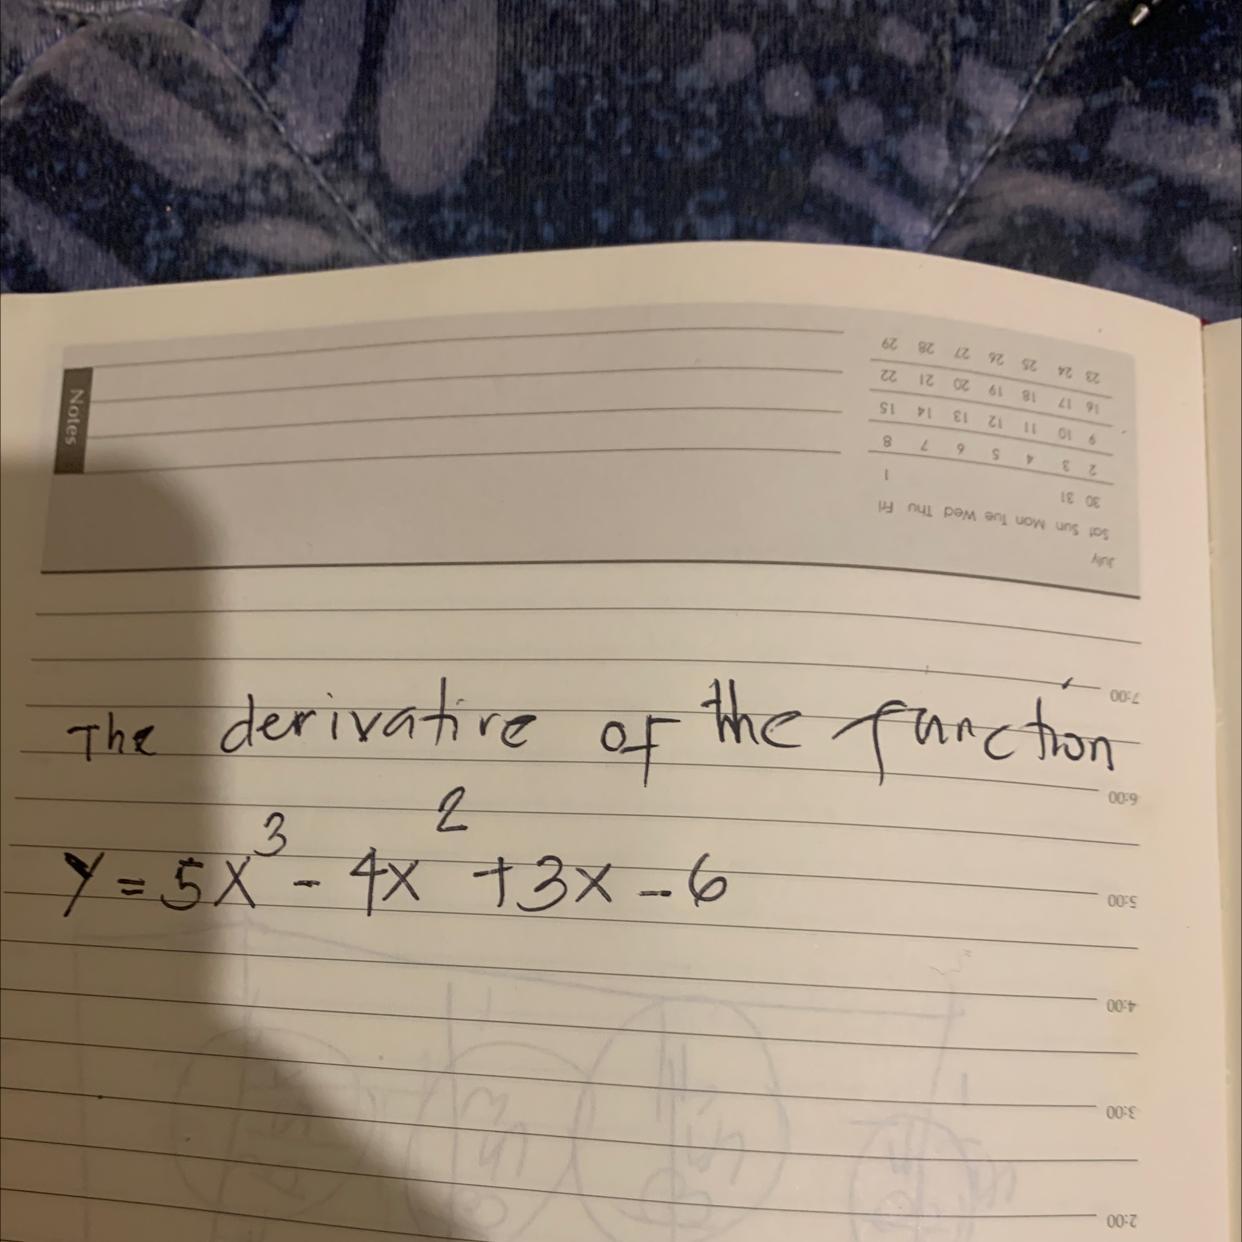 Notes
23 24 25 26 27 28 29
16 17 18 19 20 21 22
9 10 11 12 13 14 15
2 3 4 5 6 7 8
30 31 1
Sat Sun Mon Tue Wed Thu Fri
July
7:00
The derivative of the function
6:00
y = 5x³ - 4x² + 3x - 6
5:00
4:00
3:00
2:00